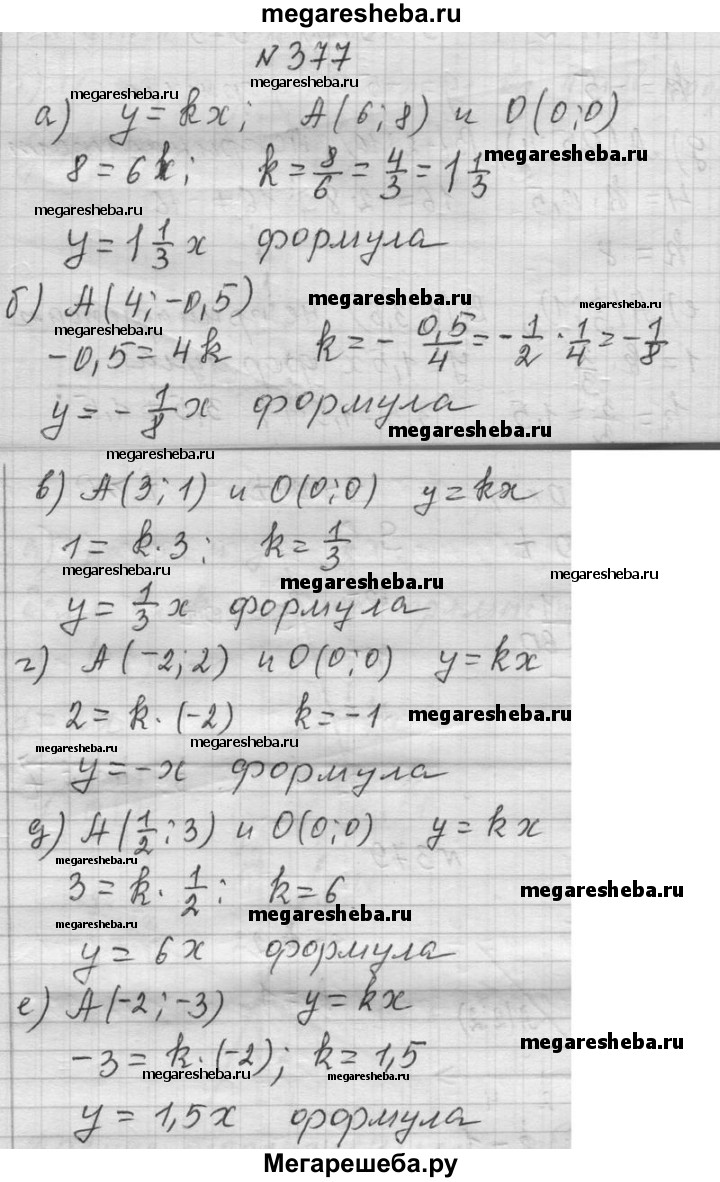 megaresheba.ru
N 377
megaresheba.ru megaresheba.ru
а) y = kx; A(6; 8) и O(0; 0)
8 = 6k; k = 8/6 = 4/3 = 1 1/3 megaresheba.ru
megaresheba.ru
y = 1 1/3 x формула
б) A(4; -0,5) megaresheba.ru megaresheba.ru
megaresheba.ru
-0,5 = 4k k = - 0,5/4 = - 1/2 · 1/4 = - 1/8
y = - 1/8 x формула
megaresheba.ru
megaresheba.ru
в) A(3; 1) и O(0; 0) y = kx
1 = k · 3; k = 1/3
megaresheba.ru megaresheba.ru megaresheba.ru
y = 1/3 x формула
г) A(-2; 2) и O(0; 0) y = kx
2 = k · (-2) k = -1 megaresheba.ru
megaresheba.ru megaresheba.ru
y = -x формула
д) A(1/2; 3) и O(0; 0) y = kx
megaresheba.ru
3 = k · 1/2; k = 6 megaresheba.ru
megaresheba.ru megaresheba.ru
y = 6x формула
е) A(-2; -3) y = kx
-3 = k · (-2); k = 1,5 megaresheba.ru
megaresheba.ru megaresheba.ru
y = 1,5x формула
Мегарешеба.ру